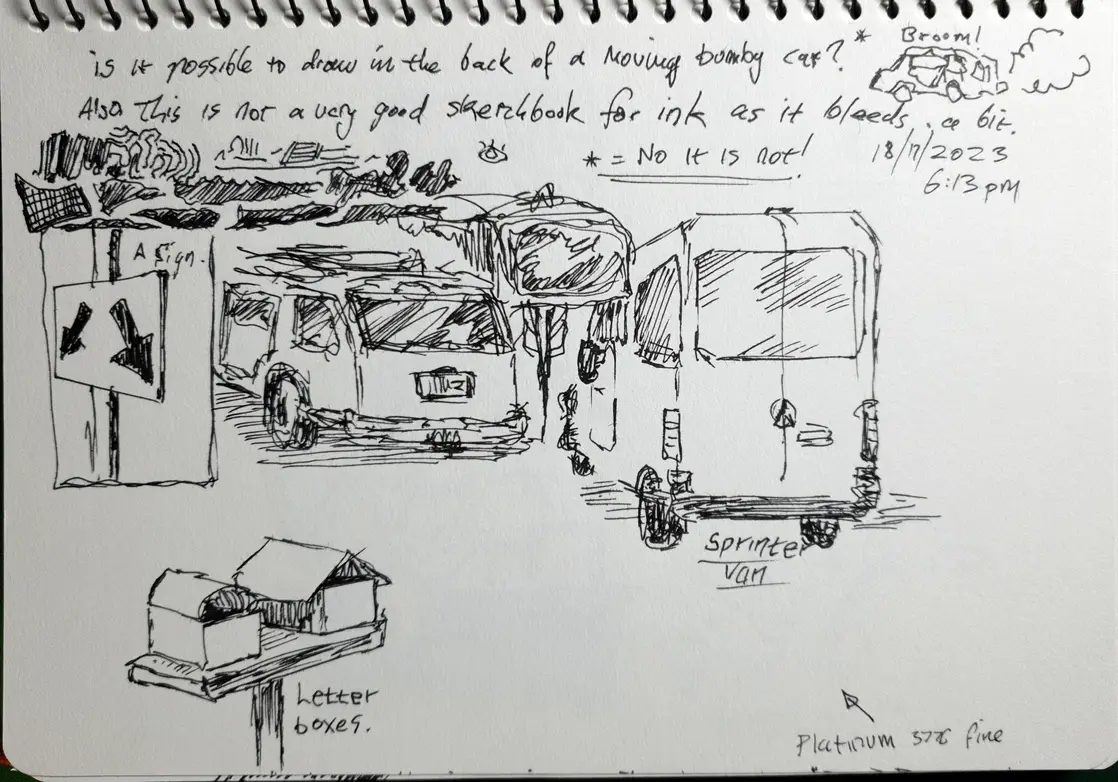 is it possible to draw in the back of a moving bumby car? *
Broom!
Also This is not a very good sketchbook for ink as it bleeds. a bit.
* = No it is not!
18/7/2023
6:13 pm
A sign.
Sprinter
Van
Letter
boxes.
Platinum 3776 fine